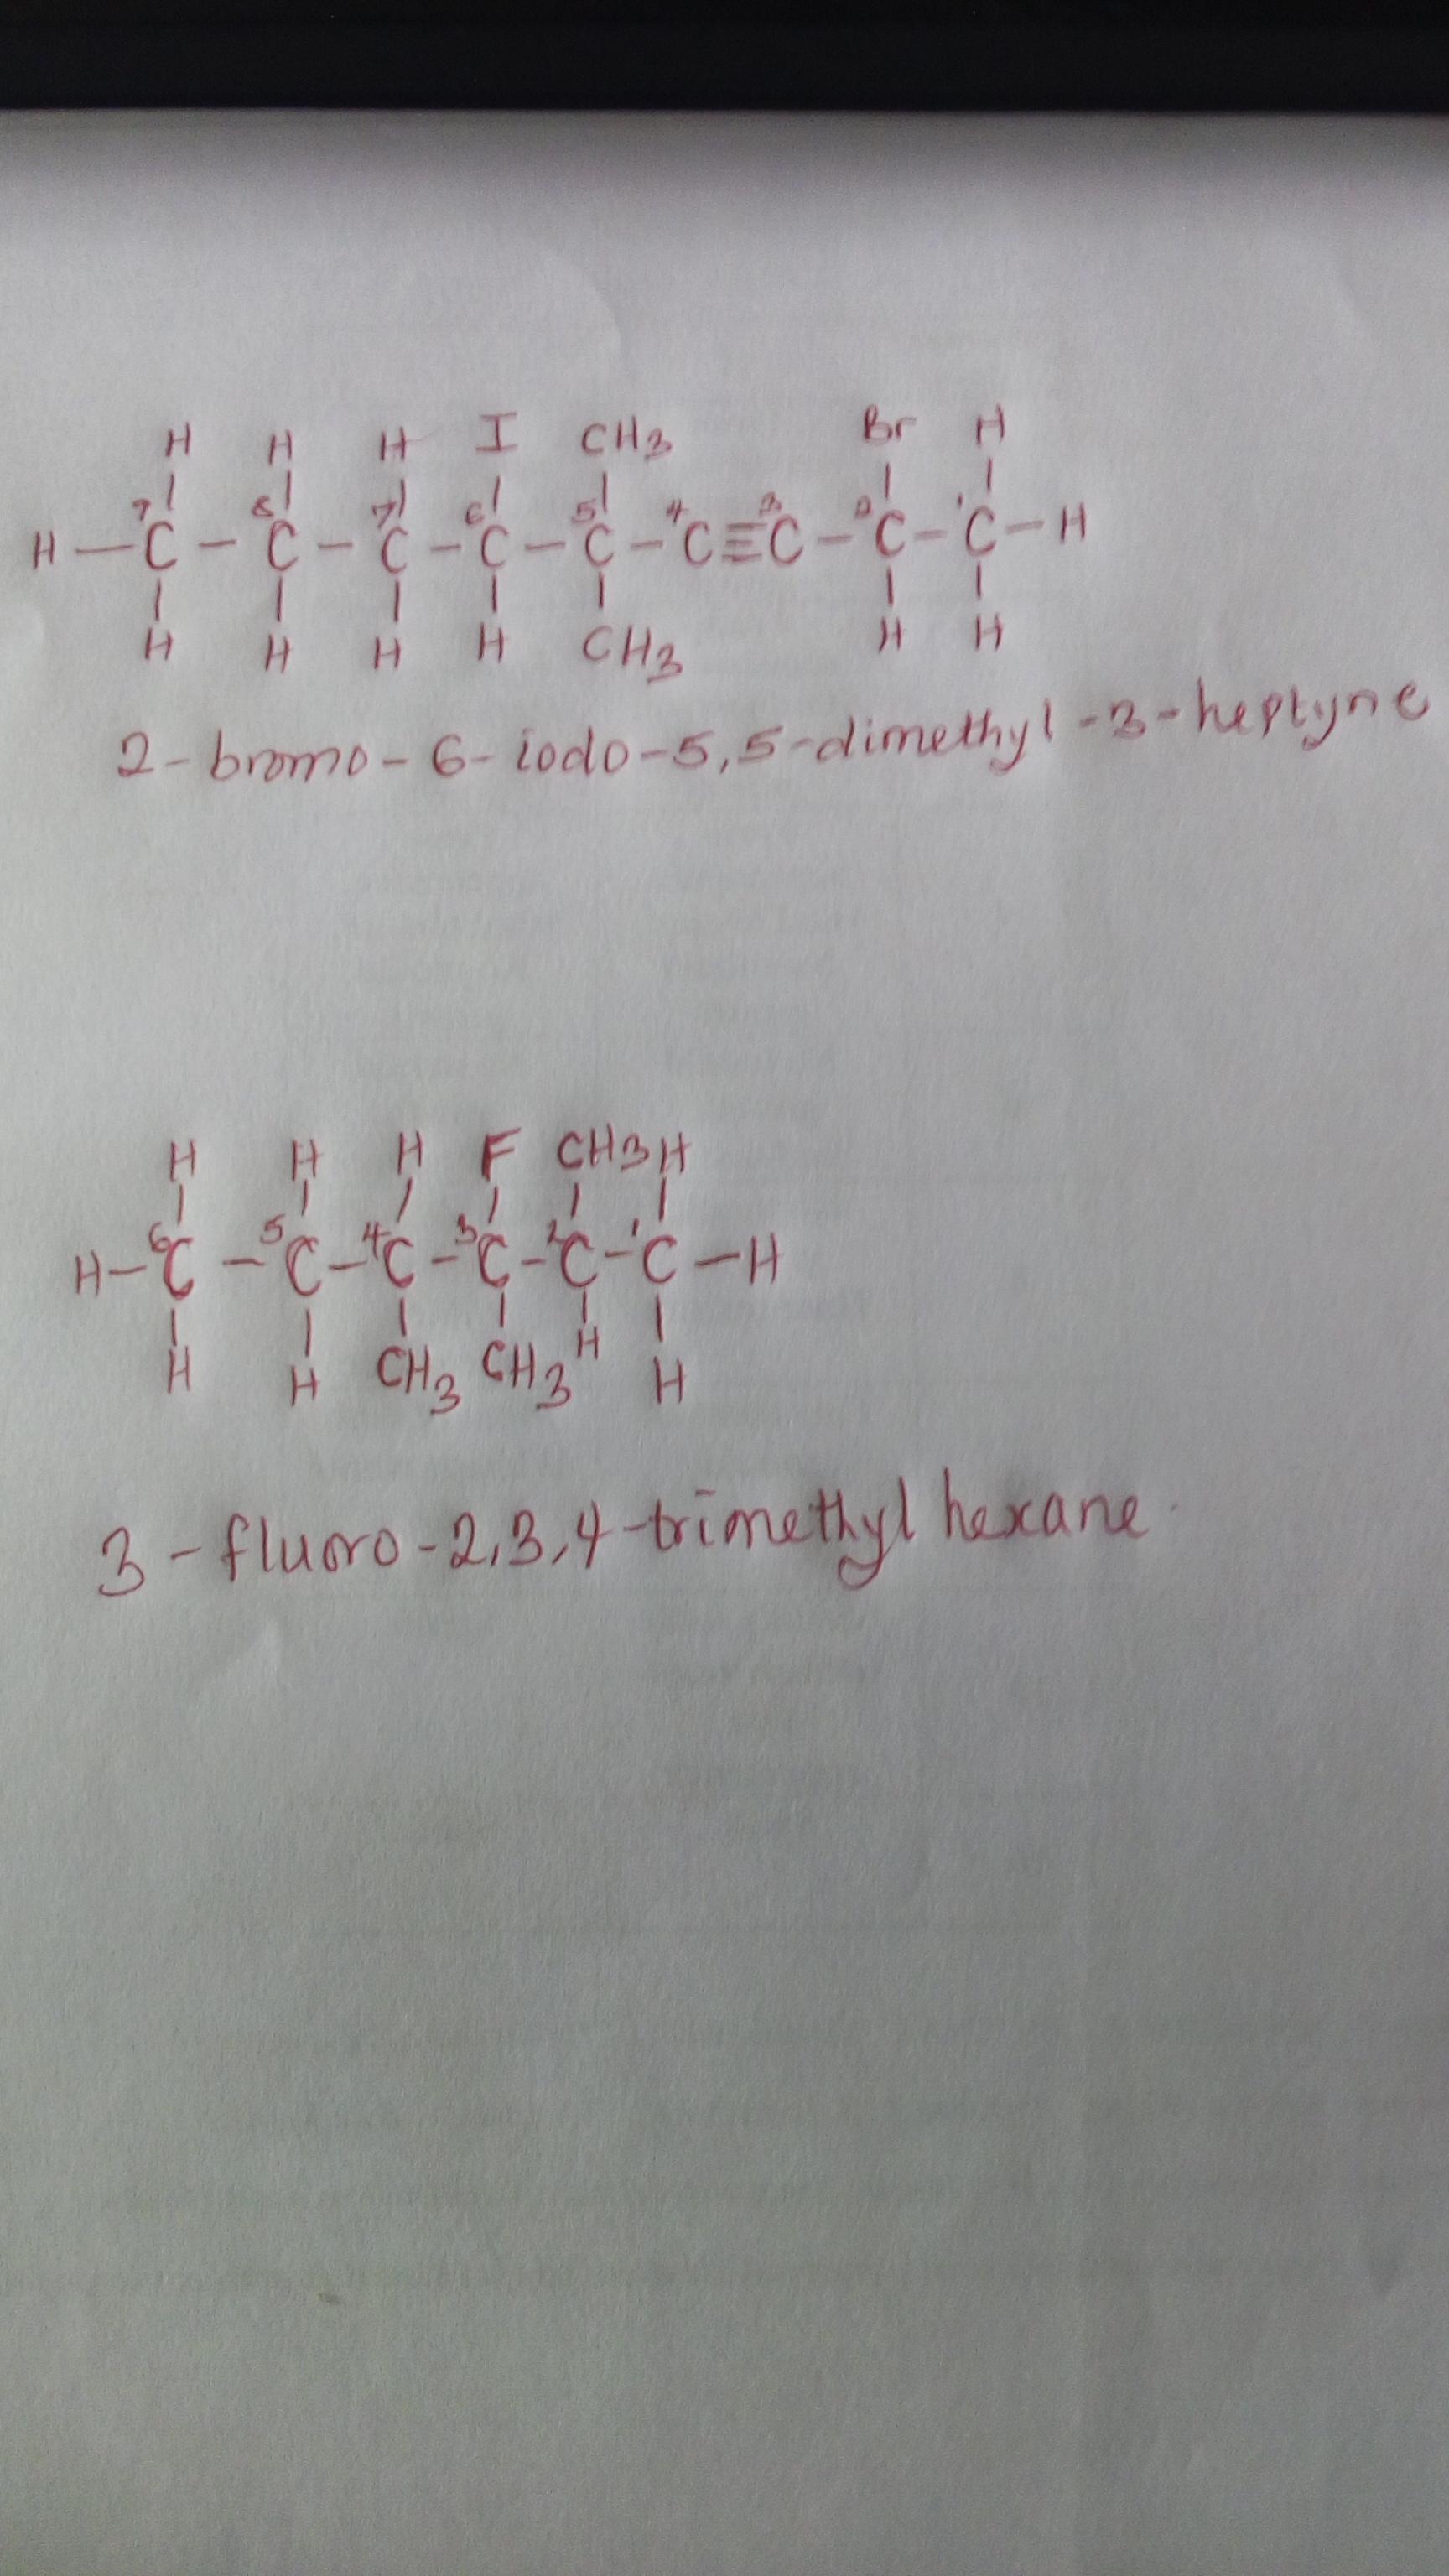 H H H I CH3 Br H
H — 9C — 8C — 7C — 6C — 5C — 4C ≡ 3C — 2C — 1C — H
H H H H CH3 H H
2-bromo-6-iodo-5,5-dimethyl-3-heptyne
H H H F CH3 H
H — 6C — 5C — 4C — 3C — 2C — 1C — H
H H CH3 CH3 H H
3-fluoro-2,3,4-trimethyl hexane.